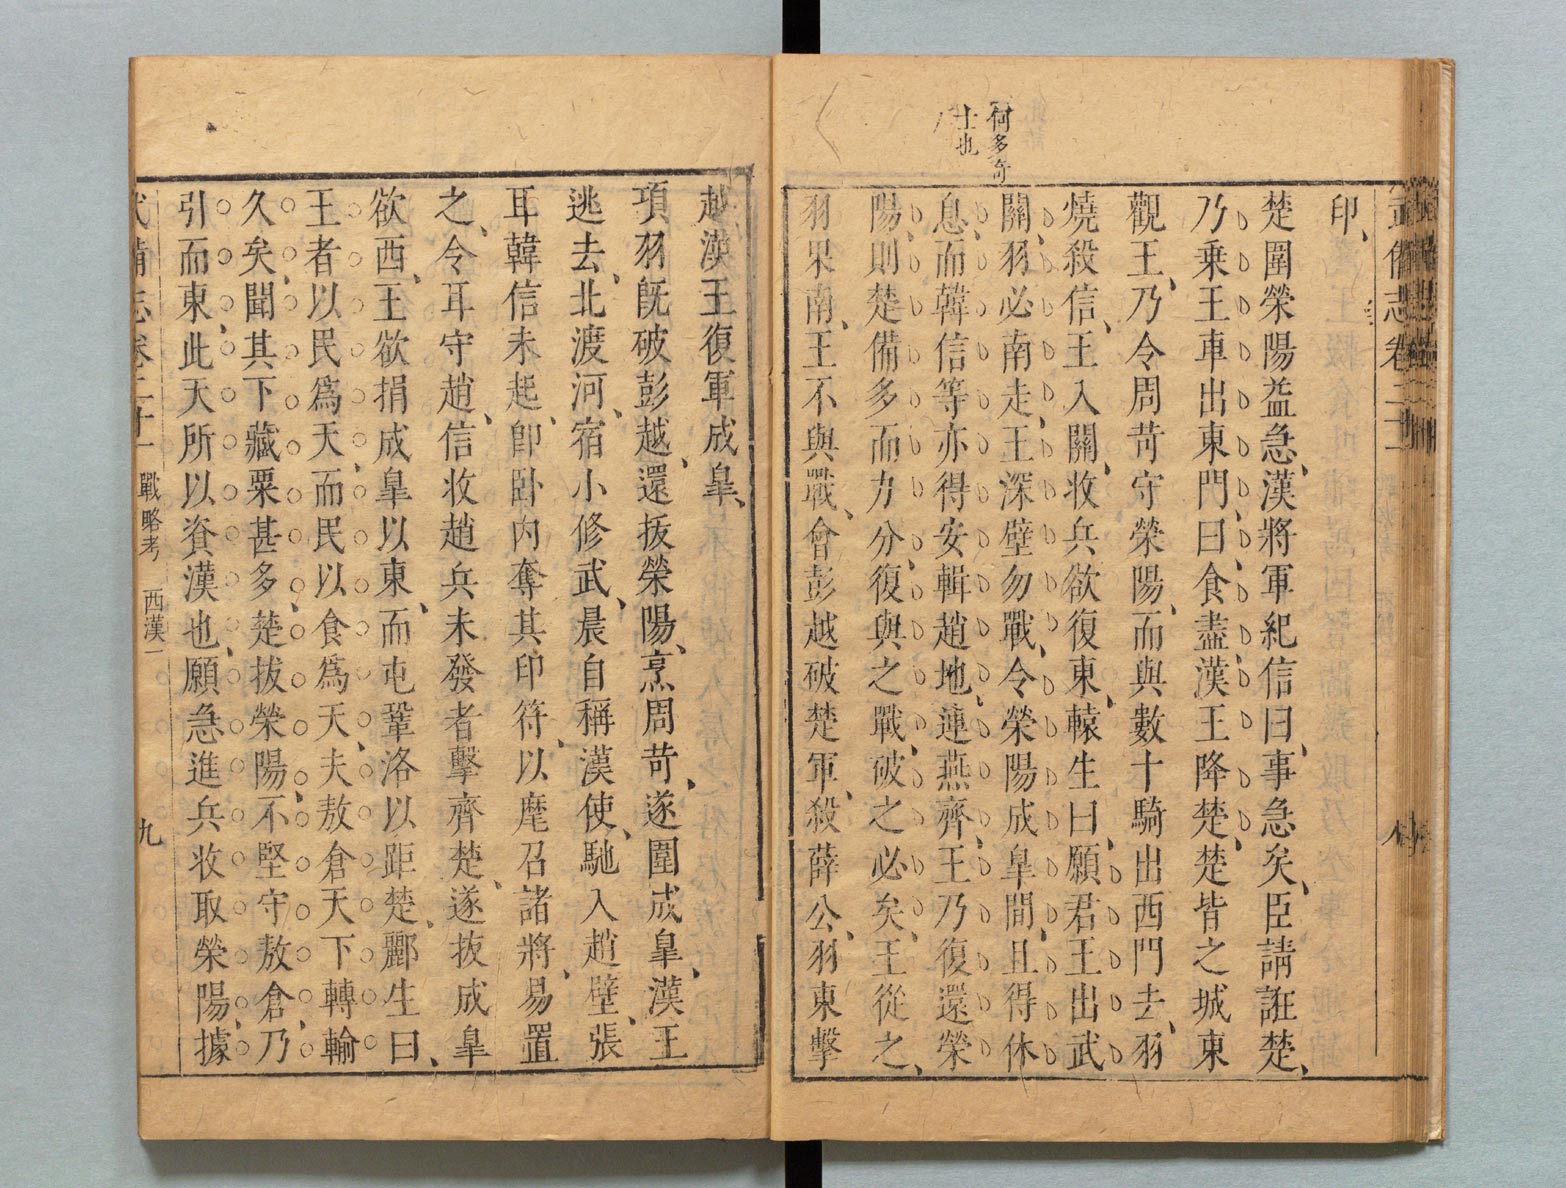 武備志卷二十一
八
印、
楚圍榮陽益急、漢將軍紀信曰、事急矣、臣請誑楚、
乃乗王車出東門、曰、食盡漢王降楚、楚皆之城東
觀王、乃令周苛守榮陽、而與數十騎出西門去、羽
燒殺信、王入關、收兵欲復東、轅生曰、願君王出武
關、羽必南走、王深壁勿戰、令榮陽成皐間、且得休
息、而韓信等亦得安輯趙地、連燕齊、王乃復還榮
陽、則楚備多而力分、復與之戰、破之必矣、王從之、
羽果南、王不與戰、會彭越破楚軍、殺薛公、羽東擊
何多奇
士也
越漢王復軍成皐、
項羽旣破彭越、還抜榮陽、烹周苛、遂圍成皐、漢王
逃去、北渡河、宿小修武、晨自稱漢使、馳入趙壁、張
耳韓信未起、卽臥內奪其印符、以麾召諸將、易置
之、令耳守趙、信收趙兵未發者擊齊、楚遂抜成皐
欲西、王欲捐成皐以東、而屯鞏洛以距楚、酈生曰、
王者以民爲天、而民以食爲天、夫敖倉天下轉輸
久矣、聞其下藏粟甚多、楚拔榮陽、不堅守敖倉、乃
引而東、此天所以資漢也、願急進兵收取榮陽、據
武備志卷二十一 戰略考 西漢一
九